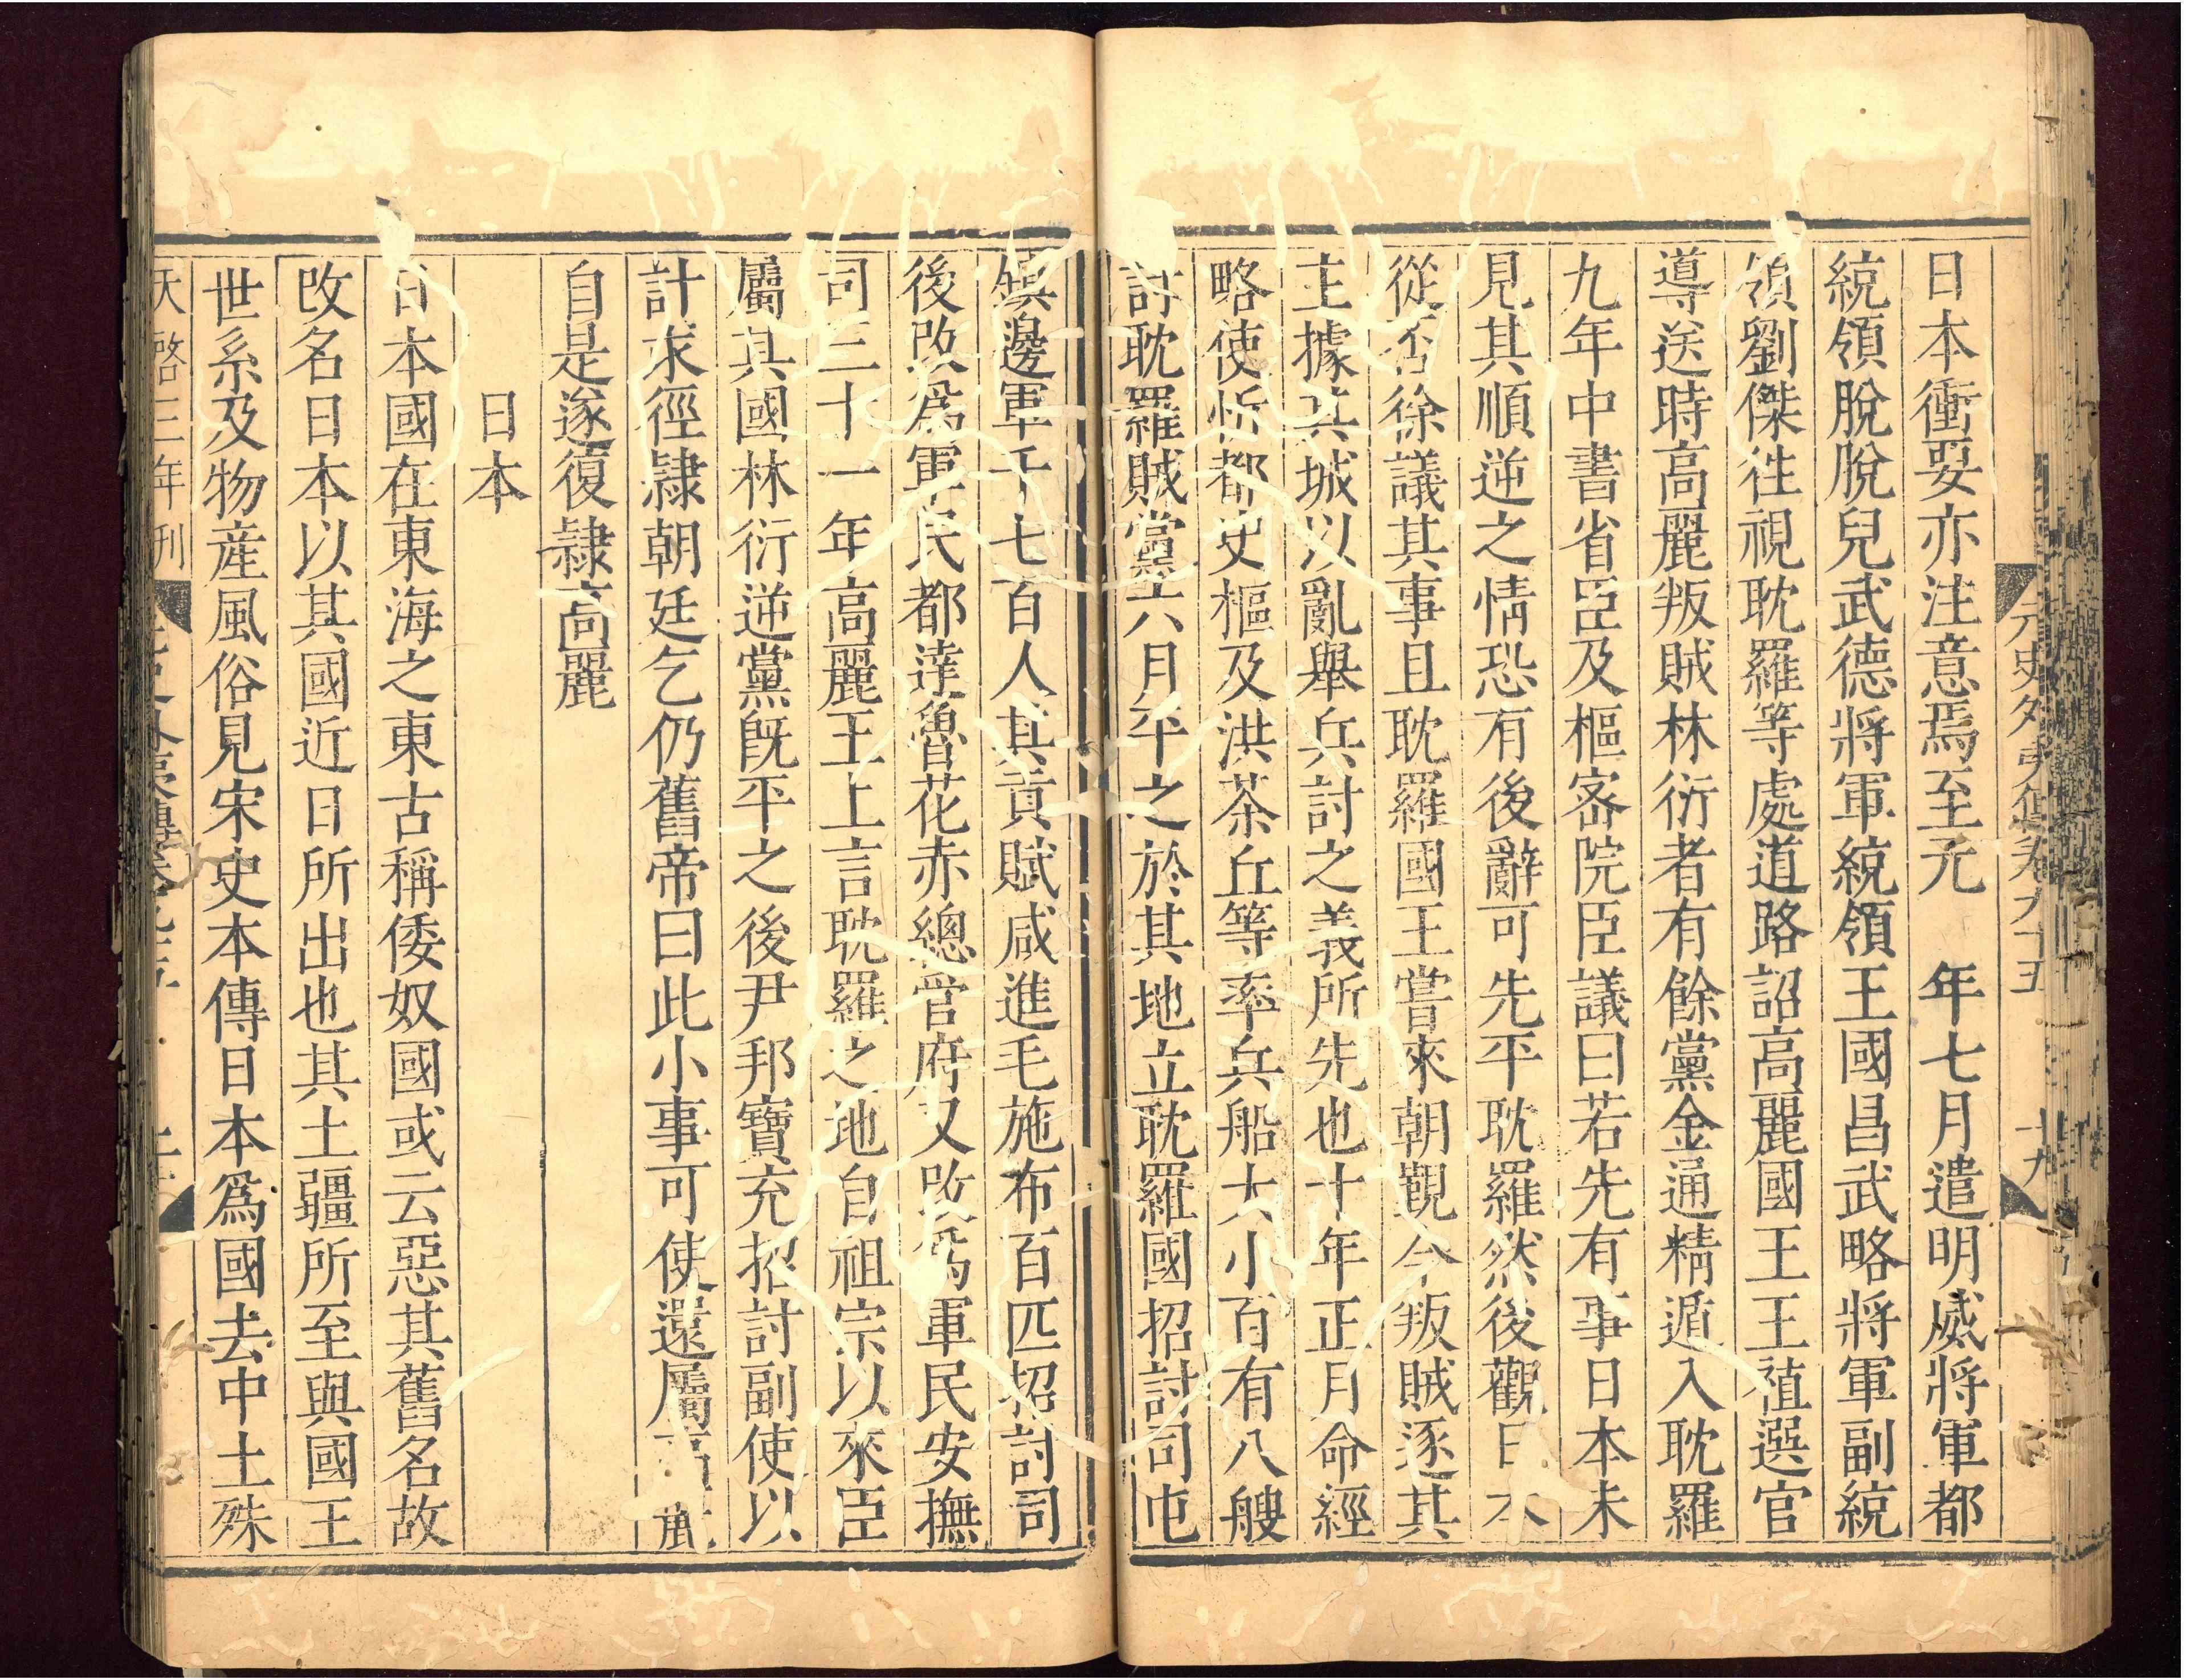 日本衝要亦注意焉至元　年七月遣明威將軍都
統領脫脫兒武德將軍統領王國昌武略將軍副統
領劉傑徃視耽羅等處道路詔高麗國王王禃選官
導送時高麗叛賊林衍者有餘黨金通精遁入耽羅
九年中書省臣及樞密院臣議曰若先有事日本未
見其順逆之情恐有後辭可先平耽羅然後觀日本
從否徐議其事且耽羅國王嘗來朝觀今叛賊逐其
主據其城以亂舉兵討之義所先也十年正月命經
略使忻都史樞及洪茶丘等率兵船大小百有八艘
討耽羅賊黨六月平之於其地立耽羅國招討司屯
鎮邊軍千七百人其貢賦咸進毛施布百匹招討司
後改爲軍民都達魯花赤總管府又改爲軍民安撫
司三十一年高麗王上言耽羅之地自祖宗以來臣
屬其國林衍逆黨旣平之後尹邦寶充招討副使以
計求徑隸朝廷乞仍舊帝曰此小事可使還屬高麗
自是遂復隸高麗
日本
日本國在東海之東古稱倭奴國或云惡其舊名故
改名日本以其國近日所出也其土疆所至與國王
世系及物産風俗見宋史本傳日本爲國去中土殊
天啓三年刊